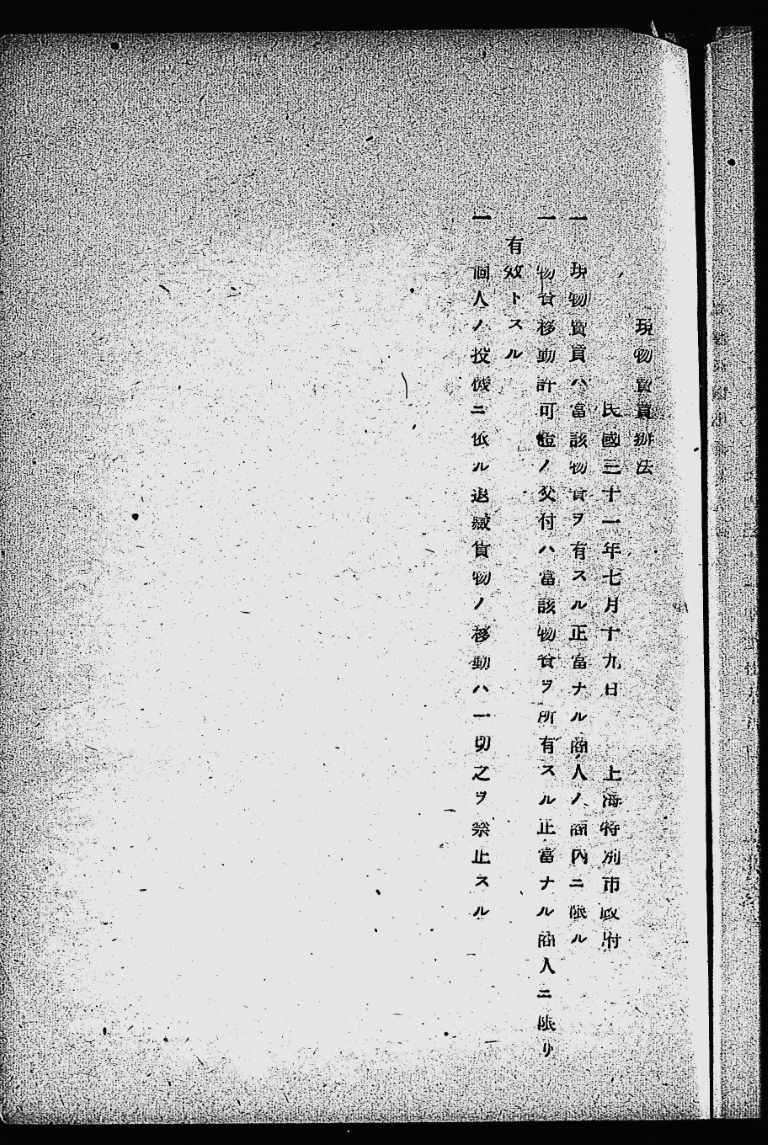 現物賣買辦法
民國三十一年七月十九日　上海特別市政府
一　現物賣買ハ當該物資ヲ有スル正當ナル商人ノ商內ニ限ル
一　物資移動許可證ノ交付ハ當該物資ヲ所有スル正當ナル商人ニ限リ
有效トスル
一　個人ノ投機ニ依ル退藏貨物ノ移動ハ一切之ヲ禁止スル